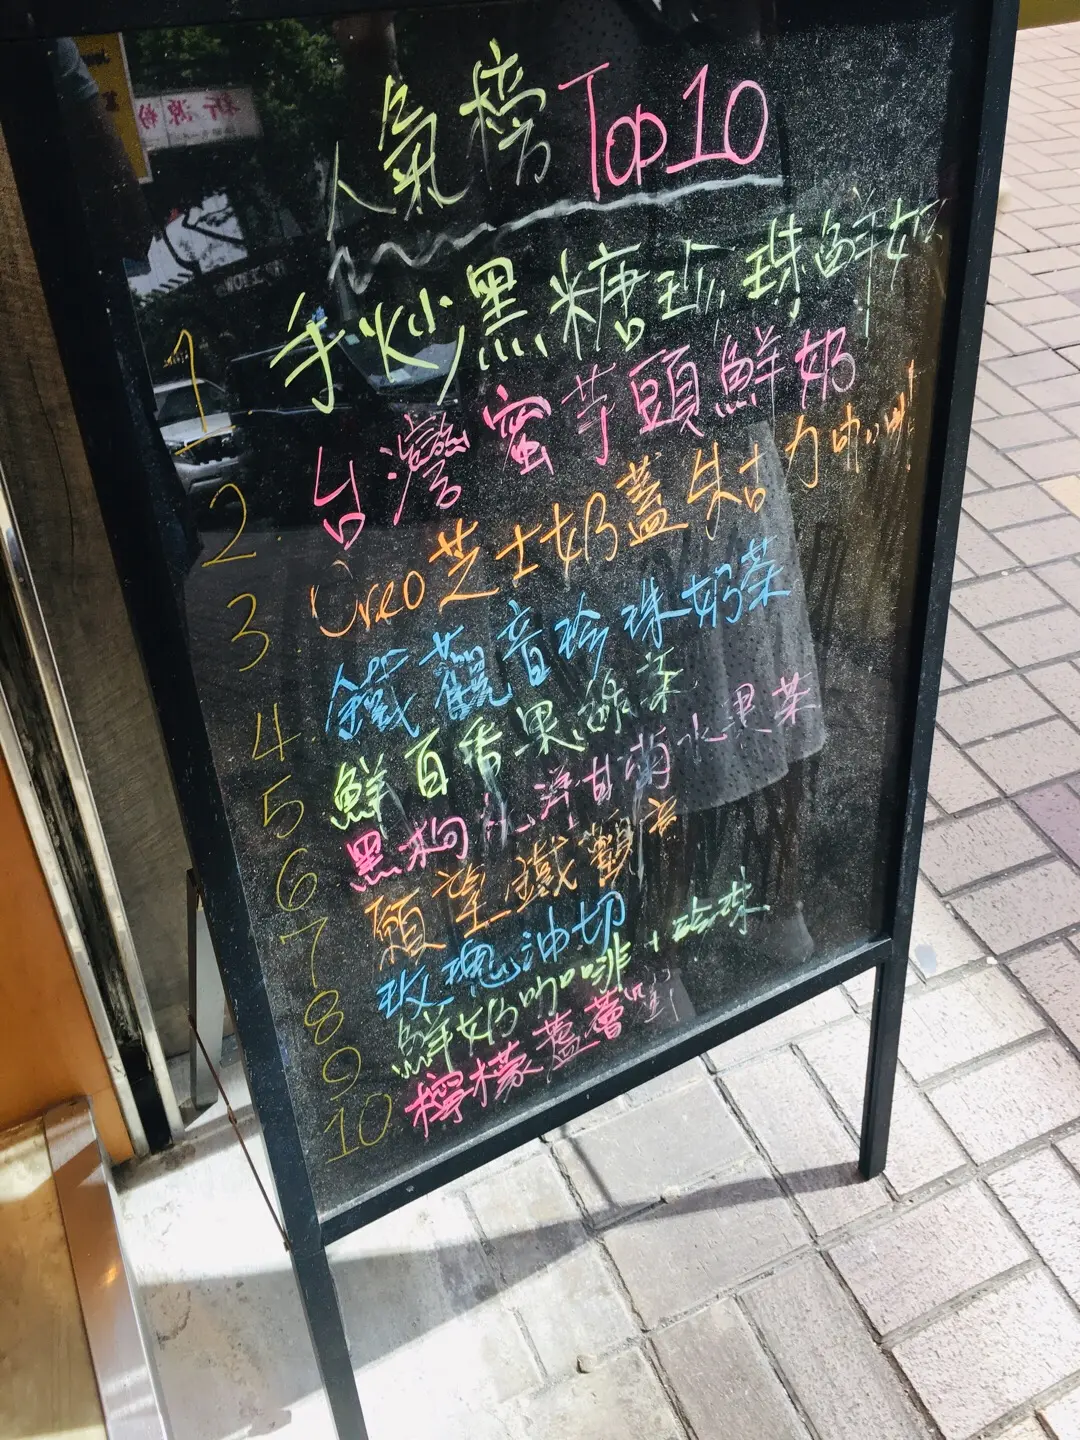 人氣榜 Top 10
1. 手炒黑糖珍珠鮮奶
2. 台灣蜜芋頭鮮奶
3 Oreo芝士奶蓋朱古力咖啡
4. 鐵觀音珍珠奶茶
5 鮮百香果綠茶
6 黑枸杞洋甘菊水果茶
7 願望鐵觀音
8 玫瑰油切
9 鮮奶咖啡+珍珠
10 檸檬蘆薈